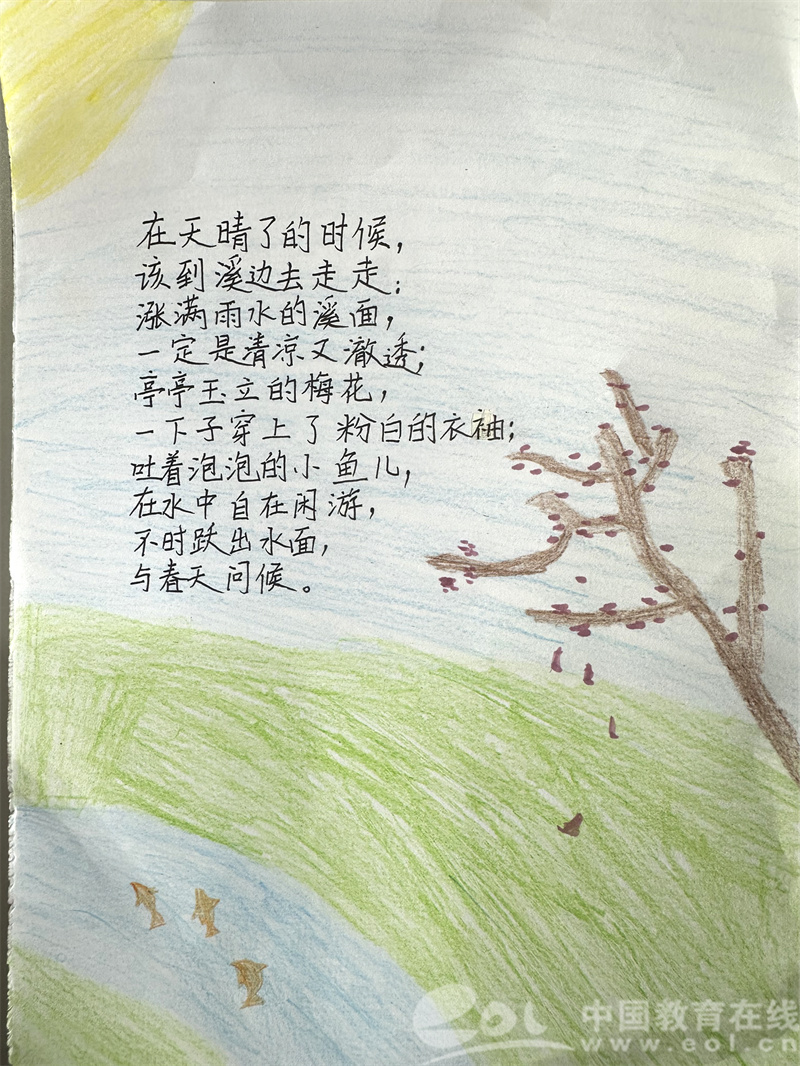 在天晴了的时候，
该到溪边去走走：
涨满雨水的溪面，
一定是清凉又澈透；
亭亭玉立的梅花，
一下子穿上了粉白的衣袖；
吐着泡泡的小鱼儿，
在水中自在闲游，
不时跃出水面，
与春天问候。
eol 中国教育在线
www.eol.cn